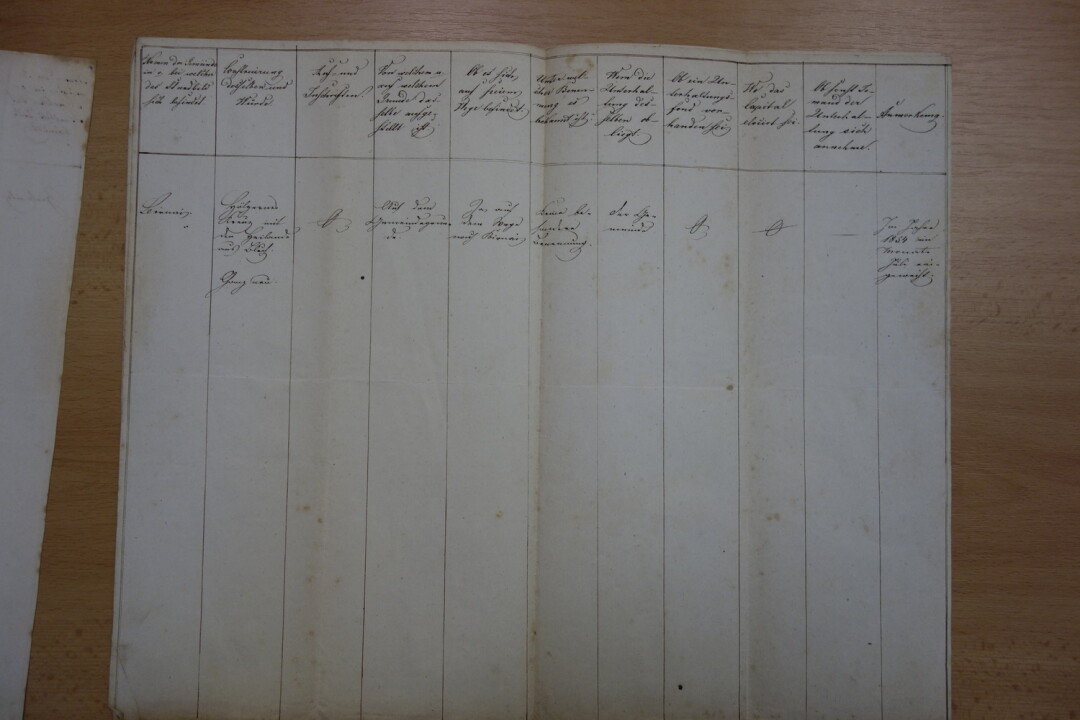 Namen der Gemeinde
in u. bei welcher
das Wandbild
sich befindet
Costruirung
desselben und
Würde
Auf- und
Inschriften.
Von welchem u.
auf welchem
Grunde das-
selbe aufge-
stellt ist
Ob es sich
auf freiem
Wege befindet
Unter wel-
cher Benen-
nung es
bekannt ist
Wem die
Unterhal-
tung des-
selben ob-
liegt
Ob ein Un-
terhaltungs-
fond vor-
handen sei
Wo das
Capital
elocirt sei.
Ob sonst Je-
mand der
Unterhal-
tung sich
annehme.
Anmerkung.
Hölzernes
Kreuz mit
dem Heilande
aus Blech.
Ganz neu.
Auf dem
Gemeindegrun-
de
Ja, auf
dem Wege
nach
Keine be-
sondere
Benennung.
Der Ge-
meinde
Im Jahre
1854 im
Monate
Juli ein-
geweiht.